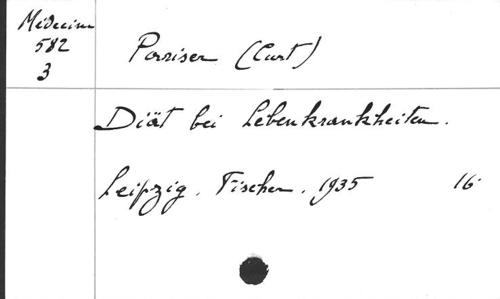 Médecine
582
3
Porriser (Curt)
Diät bei Leberkrankheiten.
Leipzig. Fischer. 1935 16